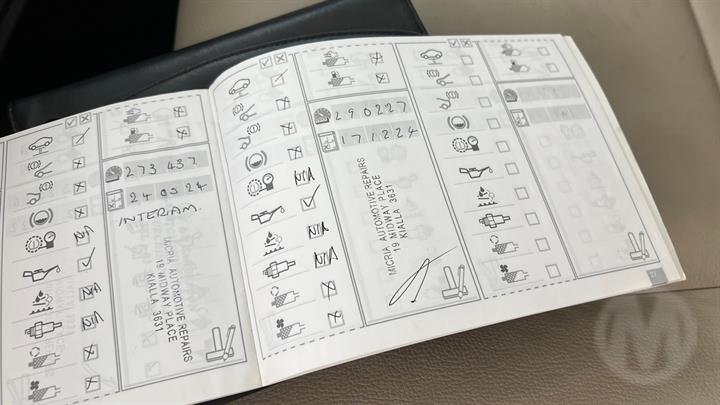 273 437
240524
INTERAM.
MICRIA AUTOMOTIVE REPAIRS
19 MIDWAY PLACE
KIALLA 3631
N/A
N/A
N/A
290227
171224
MICRIA AUTOMOTIVE REPAIRS
19 MIDWAY PLACE
KIALLA 3631
M